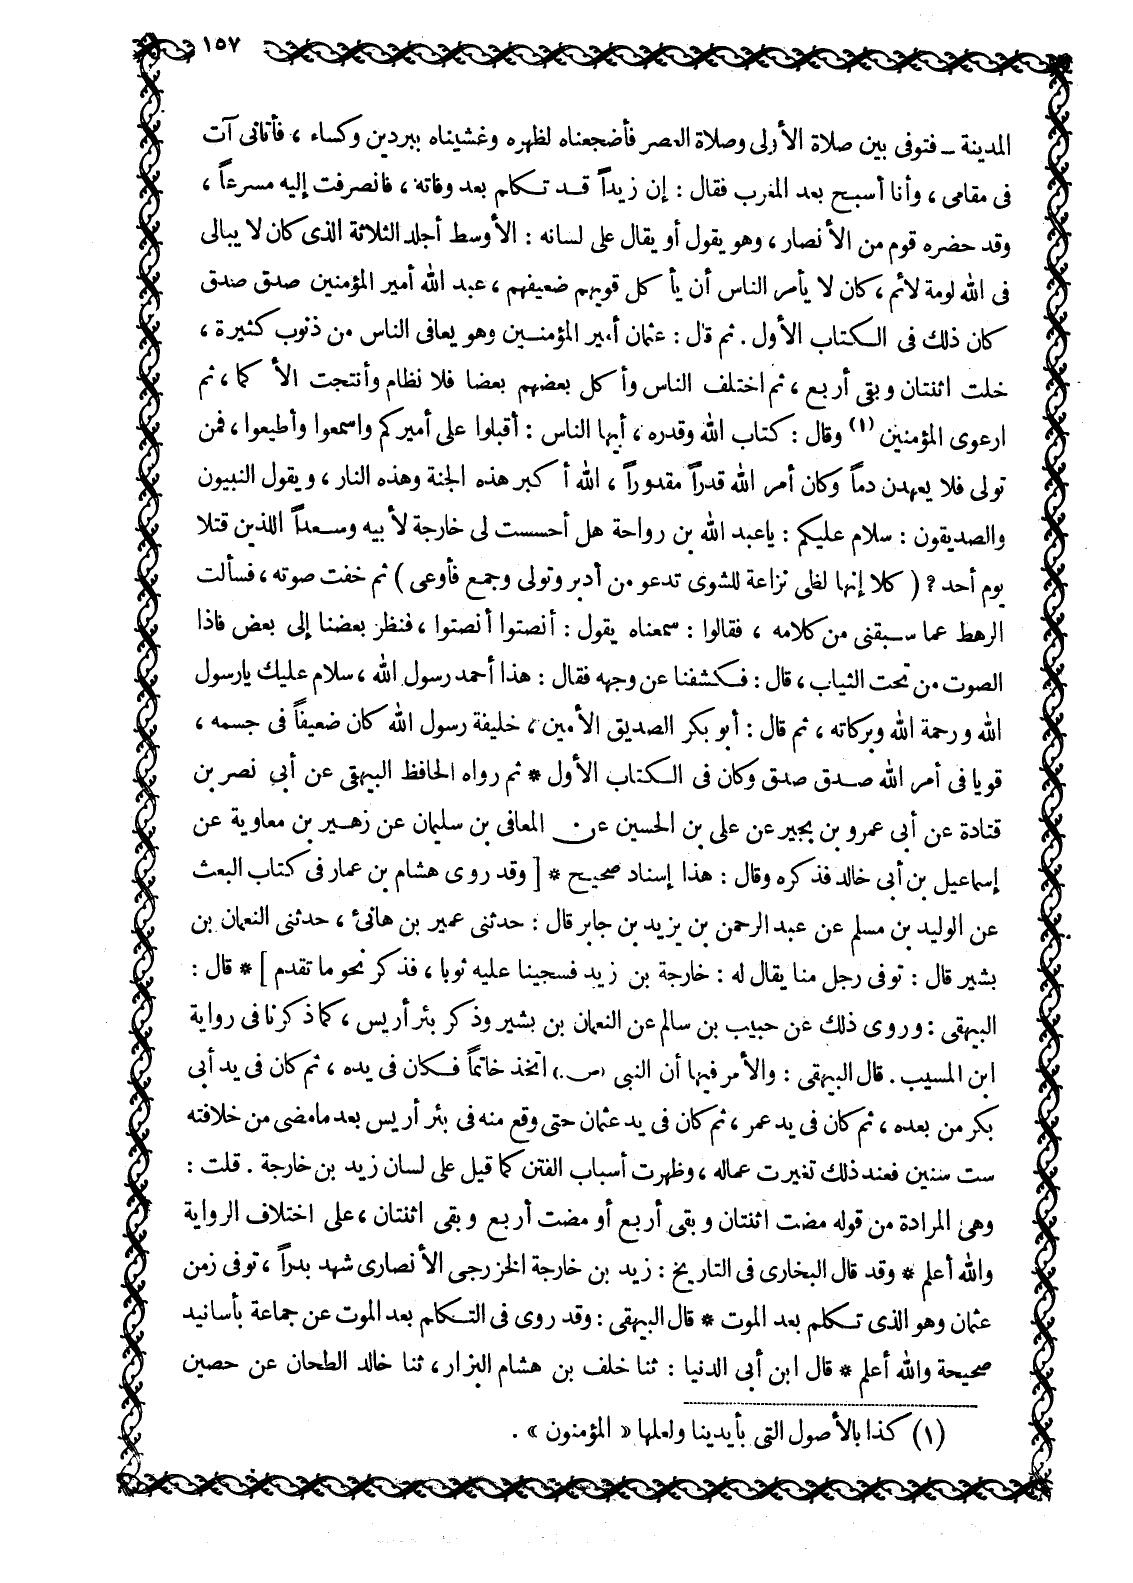 ١٥٧
المدينة ــ فتوفى بين صلاة الأولى وصلاة العصر فأضجعناه لظهره وغشيناه ببردين وكساء ، فأتانى آت
فى مقامى ، وأنا أسبح بعد المغرب فقال : إن زيداً قد تكلم بعد وفاته ، فانصرفت إليه مسرعاً ،
وقد حضره قوم من الأنصار ، وهو يقول أو يقال على لسانه : الأوسط أجلد الثلاثة الذى كان لا يبالى
فى الله لومة لائم ، كان لا يأمر الناس أن يأكل قويهم ضعيفهم ، عبد الله أمير المؤمنين صدق صدق
كان ذلك فى الكتاب الأول . ثم قال : عثمان أمير المؤمنين وهو يعافى الناس من ذنوب كثيرة ،
خلت اثنتان وبقى أربع ، ثم اختلف الناس وأكل بعضهم بعضا فلا نظام وأنتجت الأكما ، ثم
ارعوى المؤمنين (١) وقال : كتاب الله وقدره ، أيها الناس : أقبلوا على أميركم واسمعوا وأطيعوا ، فمن
تولى فلا يعهدن دماً وكان أمر الله قدراً مقدوراً ، الله أكبر هذه الجنة وهذه النار ، ويقول النبيون
والصديقون : سلام عليكم : ياعبد الله بن رواحة هل أحسست لى خارجة لأبيه وسعداً اللذين قتلا
يوم أحد ? ( كلا إنها لظى نزاعة للشوى تدعو من أدبر وتولى وجمع فأوعى ) ثم خفت صوته ، فسألت
الرهط عما سبقنى من كلامه ، فقالوا : سمعناه يقول : أنصتوا أنصتوا ، فنظر بعضنا إلى بعض فاذا
الصوت من تحت الثياب ، قال : فكشفنا عن وجهه فقال : هذا أحمد رسول الله ، سلام عليك يارسول
الله ورحمة الله وبركاته ، ثم قال : أبو بكر الصديق الأمين ، خليفة رسول الله كان ضعيفاً فى جسمه ،
قويا فى أمر الله صدق صدق وكان فى الكتاب الأول * ثم رواه الحافظ البيهقى عن أبي نصر بن
قتادة عن أبى عمرو بن بجير عن على بن الحسين عن المعافى بن سليمان عن زهير بن معاوية عن
إسماعيل بن أبى خالد فذكره وقال : هذا إسناد صحيح * [ وقد روى هشام بن عمار فى كتاب البعث
عن الوليد بن مسلم عن عبد الرحمن بن يزيد بن جابر قال : حدثنى عمير بن هانئ ، حدثنى النعمان بن
بشير قال : توفى رجل منا يقال له : خارجة بن زيد فسجينا عليه ثوبا ، فذكر نحو ما تقدم ] * قال :
البيهقى : وروى ذلك عن حبيب بن سالم عن النعمان بن بشير وذكر بئر أريس ، كما ذكرنا فى رواية
ابن المسيب . قال البيهقى : والأمر فيها أن النبى (ص.) اتخذ خاتماً فكان فى يده ، ثم كان فى يد أبى
بكر من بعده ، ثم كان فى يد عمر ، ثم كان فى يد عثمان حتى وقع منه فى بئر أريس بعد مامضى من خلافته
ست سنين فعند ذلك تغيرت عماله ، وظهرت أسباب الفتن كما قيل على لسان زيد بن خارجة . قلت :
وهى المرادة من قوله مضت اثنتان وبقى أربع أو مضت أربع وبقى اثنتان ، على اختلاف الرواية
والله أعلم * وقد قال البخارى فى التاريخ : زيد بن خارجة الخزرجى الأنصارى شهد بدراً ، توفى زمن
عثمان وهو الذى تكلم بعد الموت * قال البيهقى : وقد روى فى التكلم بعد الموت عن جماعة بأسانيد
صحيحة والله أعلم * قال ابن أبى الدنيا : ثنا خلف بن هشام البزار ، ثنا خالد الطحان عن حصين
(١) كذا بالأصول التى بأيدينا ولعلها « المؤمنون » .